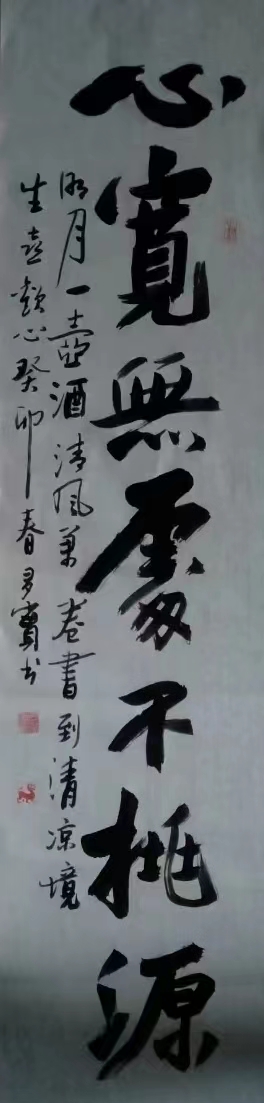 心寬無處不桃源
明月一壺酒清风万卷書到清凉境
生歡喜心癸卯春多寶书